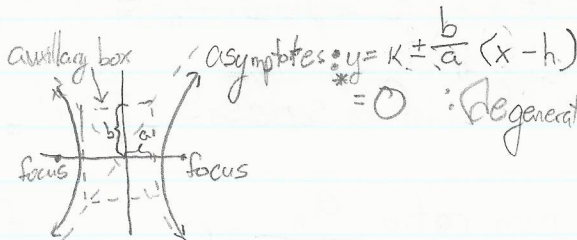 auxillary box
asymptotes: y = k ± b/a (x - h)
* = 0 : Degenerat
b
a
focus
focus